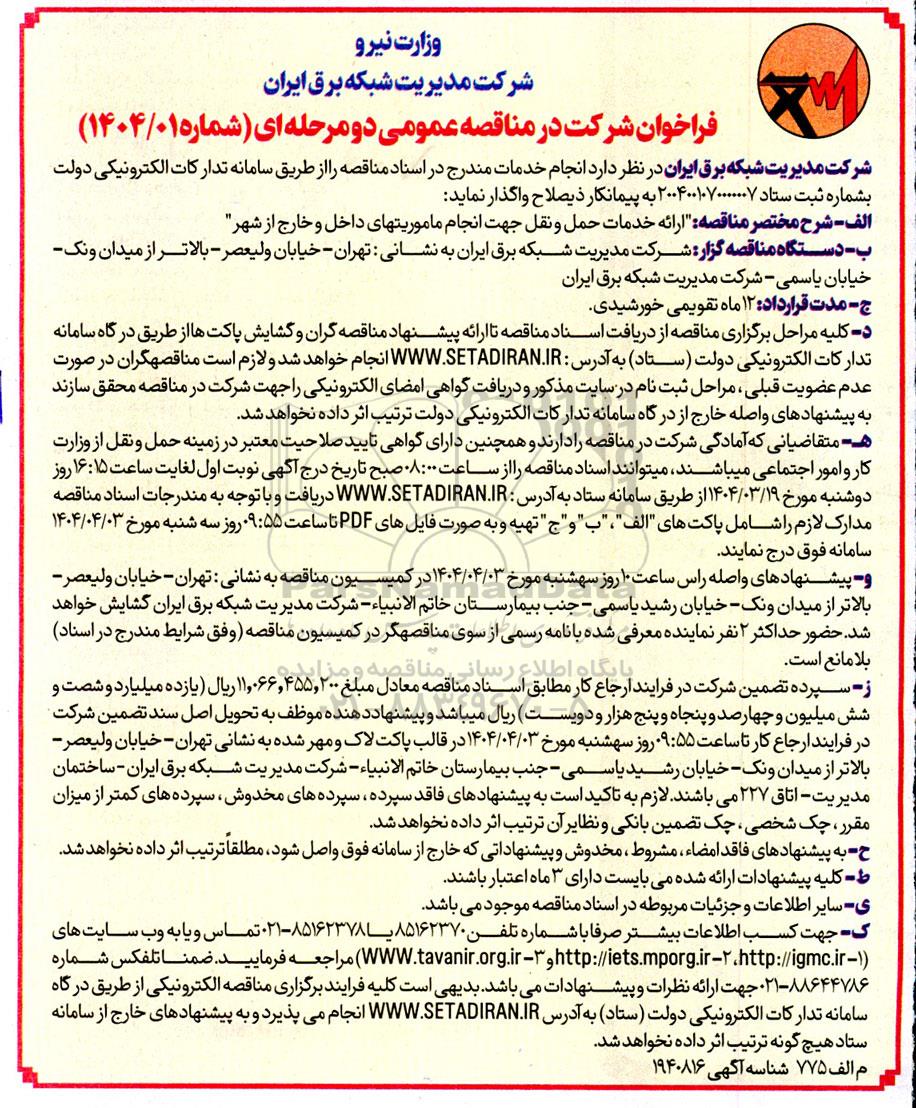 وزارت نیرو
شرکت مدیریت شبکه برق ایران
فراخوان شرکت در مناقصه عمومی دو مرحله ای (شماره ۱۴۰۴/۰۱)
شرکت مدیریت شبکه برق ایران در نظر دارد انجام خدمات مندرج در اسناد مناقصه را از طریق سامانه تدارکات الکترونیکی دولت
بشماره ثبت ستاد ۲۰۰۴۰۰۱۰۷۰۰۰۰۰۰۷ به پیمانکار ذیصلاح واگذار نماید:
الف- شرح مختصر مناقصه: "ارائه خدمات حمل و نقل جهت انجام ماموریتهای داخل و خارج از شهر"
ب- دستگاه مناقصه گزار: شرکت مدیریت شبکه برق ایران به نشانی: تهران- خیابان ولیعصر- بالاتر از میدان ونک-
خیابان یاسمی- شرکت مدیریت شبکه برق ایران
ج- مدت قرارداد: ۱۲ ماه تقویمی خورشیدی.
د- کلیه مراحل برگزاری مناقصه از دریافت اسناد مناقصه تا ارائه پیشنهاد مناقصه گران و گشایش پاکت ها از طریق درگاه سامانه
تدارکات الکترونیکی دولت (ستاد) به آدرس: WWW.SETADIRAN.IR انجام خواهد شد و لازم است مناقصهگران در صورت
عدم عضویت قبلی، مراحل ثبت نام در سایت مذکور و دریافت گواهی امضای الکترونیکی را جهت شرکت در مناقصه محقق سازند
به پیشنهادهای واصله خارج از درگاه سامانه تدارکات الکترونیکی دولت ترتیب اثر داده نخواهد شد.
هـ- متقاضیانی که آمادگی شرکت در مناقصه را دارند و همچنین دارای گواهی تایید صلاحیت معتبر در زمینه حمل و نقل از وزارت
کار و امور اجتماعی میباشند، میتوانند اسناد مناقصه را از ساعت ۰۸:۰۰ صبح تاریخ درج آگهی نوبت اول لغایت ساعت ۱۶:۱۵ روز
دوشنبه مورخ ۱۴۰۴/۰۳/۱۹ از طریق سامانه ستاد به آدرس: WWW.SETADIRAN.IR دریافت و با توجه به مندرجات اسناد مناقصه
مدارک لازم را شامل پاکت های "الف"، "ب" و "ج" تهیه و به صورت فایل های PDF تا ساعت ۰۹:۵۵ روز سه شنبه مورخ ۱۴۰۴/۰۴/۰۳
سامانه فوق درج نمایند.
و- پیشنهادهای واصله راس ساعت ۱۰ روز سهشنبه مورخ ۱۴۰۴/۰۴/۰۳ در کمیسیون مناقصه به نشانی: تهران- خیابان ولیعصر-
بالاتر از میدان ونک- خیابان رشید یاسمی- جنب بیمارستان خاتم الانبیاء- شرکت مدیریت شبکه برق ایران گشایش خواهد
شد. حضور حداکثر ۲ نفر نماینده معرفی شده با نامه رسمی از سوی مناقصهگر در کمیسیون مناقصه (وفق شرایط مندرج در اسناد)
بلامانع است.
ز- سپرده تضمین شرکت در فرایند ارجاع کار مطابق اسناد مناقصه معادل مبلغ ۱۱,۰۶۶,۴۵۵,۲۰۰ ریال (یازده میلیارد و شصت و
شش میلیون و چهارصد و پنجاه و پنج هزار و دویست) ریال میباشد و پیشنهاد دهنده موظف به تحویل اصل سند تضمین شرکت
در فرایند ارجاع کار تا ساعت ۰۹:۵۵ روز سهشنبه مورخ ۱۴۰۴/۰۴/۰۳ در قالب پاکت لاک و مهر شده به نشانی تهران- خیابان ولیعصر-
بالاتر از میدان ونک- خیابان رشید یاسمی- جنب بیمارستان خاتم الانبیاء- شرکت مدیریت شبکه برق ایران- ساختمان
مدیریت- اتاق ۲۲۷ می باشند. لازم به تاکید است به پیشنهادهای فاقد سپرده، سپرده های مخدوش، سپرده های کمتر از میزان
مقرر، چک شخصی، چک تضمین بانکی و نظایر آن ترتیب اثر داده نخواهد شد.
ح- به پیشنهادهای فاقد امضاء، مشروط، مخدوش و پیشنهاداتی که خارج از سامانه فوق واصل شود، مطلقاً ترتیب اثر داده نخواهد شد.
ط- کلیه پیشنهادات ارائه شده می بایست دارای ۳ ماه اعتبار باشند.
ی- سایر اطلاعات و جزئیات مربوطه در اسناد مناقصه موجود می باشد.
ک- جهت کسب اطلاعات بیشتر صرفا با شماره تلفن ۸۵۱۶۲۳۷۰ یا ۸۵۱۶۲۳۷۸-۰۲۱ تماس و یا به وب سایت های
(۱-http://igmc.ir، ۲-http://iets.mporg.ir و ۳-WWW.tavanir.org.ir) مراجعه فرمایید. ضمنا تلفکس شماره
۸۸۶۴۴۷۸۶-۰۲۱ جهت ارائه نظرات و پیشنهادات می باشد. بدیهی است کلیه فرایند برگزاری مناقصه الکترونیکی از طریق درگاه
سامانه تدارکات الکترونیکی دولت (ستاد) به آدرس WWW.SETADIRAN.IR انجام می پذیرد و به پیشنهادهای خارج از سامانه
ستاد هیچ گونه ترتیب اثر داده نخواهد شد.
م الف ۷۷۵ شناسه آگهی ۱۹۴۰۸۱۶
ParsNamadData
پایگاه اطلاع رسانی مناقصه و مزایده
۰۲۱-۸۸۳۴۹۶۷۰-۵